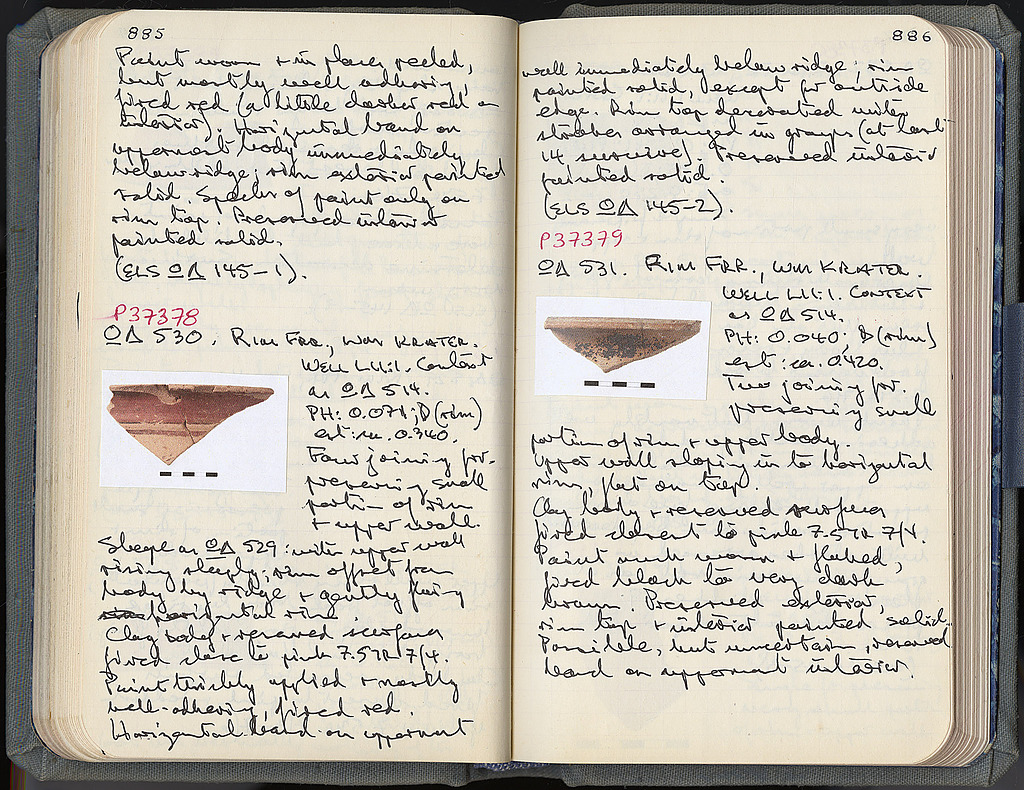 885
Paint worn + in places peeled,
but mostly well adhering,
fired red (a little darker red on
interior). Horizontal band on
uppermost body, immediately
below ridge; rim exterior painted
solid. Specks of paint only on
rim top. Preserved interior
painted solid.
(ELS ΟΔ 145-1).
P37378
ΟΔ 530. RIM FRR., WM KRATER.
WELL L11:1. Context
as ΟΔ 514.
PH: 0.071; D (rim)
est: ca. 0.340.
Four joining frr.
preserving small
portion of rim
+ upper wall.
Shape as ΟΔ 529: with upper wall
rising steeply; rim offset from
body by ridge + gently flaring
horizontal rim.
Clay body + reserved surfaces
fired close to pink 7.5YR 7/4.
Paint thickly applied + mostly
well-adhering, fired red.
Horizontal band on uppermost
886
wall immediately below ridge; rim
painted solid, except for outside
edge. Rim top decorated with
strokes arranged in groups (at least
14 survive). Preserved interior
painted solid.
(ELS ΟΔ 145-2).
P37379
ΟΔ 531. RIM FRR., WM KRATER.
WELL L11:1. CONTEXT
as ΟΔ 514.
PH: 0.040; D (rim)
est: ca. 0.420.
Two joining frr.
preserving small
portion of rim + upper body.
Upper wall sloping in to horizontal
rim, flat on top.
Clay body + reserved surfaces
fired closest to pink 7.5YR 7/4.
Paint much worn + flaked,
fired black to very dark
brown. Preserved exterior,
rim top + interior painted solid.
Possible, but uncertain, reserved
band on uppermost interior.